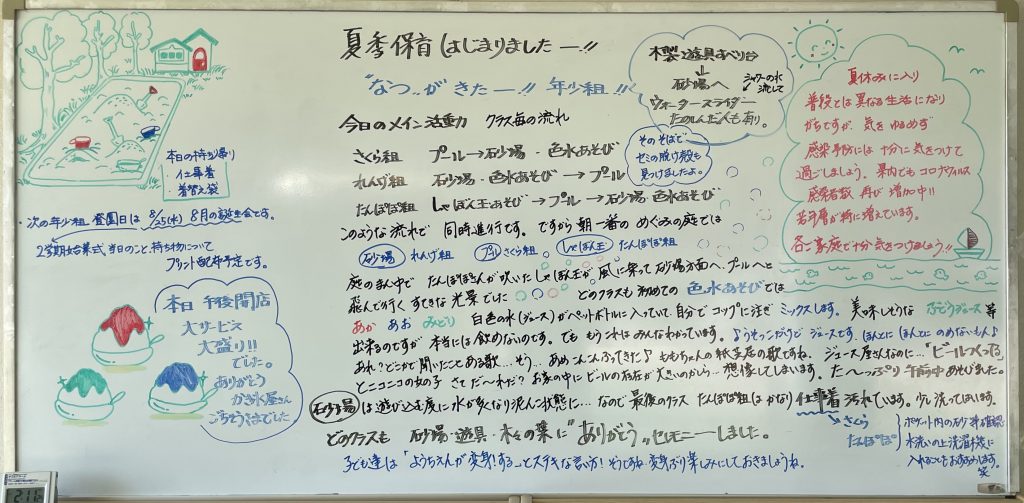 夏季保育はじまりましたー!!
"なつ"がきたー!! 年少組!!
今日のメイン活動 クラス毎の流れ
さくら組 プール→砂場・色水あそび
れんげ組 砂場・色水あそび→プール
たんぽぽ組 しゃぼん玉あそび→プール→砂場・色水あそび
このような流れで 同時進行です。ですから朝一番の めぐみの庭では
砂場 れんげ組 プール さくら組 しゃぼん玉 たんぽぽ組
庭のまん中で たんぽぽさんが吹いた しゃぼん玉が 風に乗って 砂場方面へ、プールへと
飛んで行く すてきな 光景でした どのクラスも 初めての 色水あそびでは
あか あお みどり 白色の水(ジュース)がペットボトルに入っていて 自分で コップに注ぎ ミックスします。 美味しそうな ぶどうジュース 等
出来るのですが 本当には飲めないのです。でも もうこれは みんなわかっています。ようそっこだけど ジュースです。ほんとに ほんとに のめないもん♪
あれ?どこかで聞いたことある歌…そう… あめこんこんふってきた♪ ももちゃんの紙芝居の歌ですね。 ジュース屋さんなのに…「ビールつくってる」
とニコニコの女の子 さて だ〜れだ? お家の中に ビールの存在が 大きいのかしら…想像してしまいます。た〜っぷり 午前中 あそびました。
砂場 は 遊び込む度に 水が多くなり 泥んこ状態に… なので 最後のクラス たんぽぽ組は かなり 仕事着 汚れています。少し洗ってはいます。
どのクラスも 砂場・遊具・木々の葉に "ありがとう"セレモニーしました。
子ども達は「ようちえんが変身!することステキな言い方! そうですね 変身ぶり 楽しみにしておきましょうね。
さくら
たんぽぽ
ポケット内の石砂等確認
水洗いの上洗濯機に
入れることをおすすめします。
笑
木製遊具すべり台
↓
砂場へ
シャワーの水
流して
ウォータースライダー
たのしんだ人も有り。
そのそばで
セミの脱け殻も
見つけましたよ。
夏休みに入り
普段とは異なる生活になり
がちですが、気をゆるめず
感染予防には十分に気をつけて
過ごしましょう。県内でもコロナウイルス
感染者数 再び 増加中!!
若年層が特に増えています。
各ご家庭で十分気をつけましょう!!
本日の持ち帰り
・仕事着
・着替え袋
・次の年少組 登園日は 8/25(水) 8月の誕生会です。
2学期始業式、当日のこと、持ち物について
プリント配布予定です。
本日 午後開店
大サービス
大盛り!!
でした。
ありがとう
かき氷屋さん
ごちそうさまでした